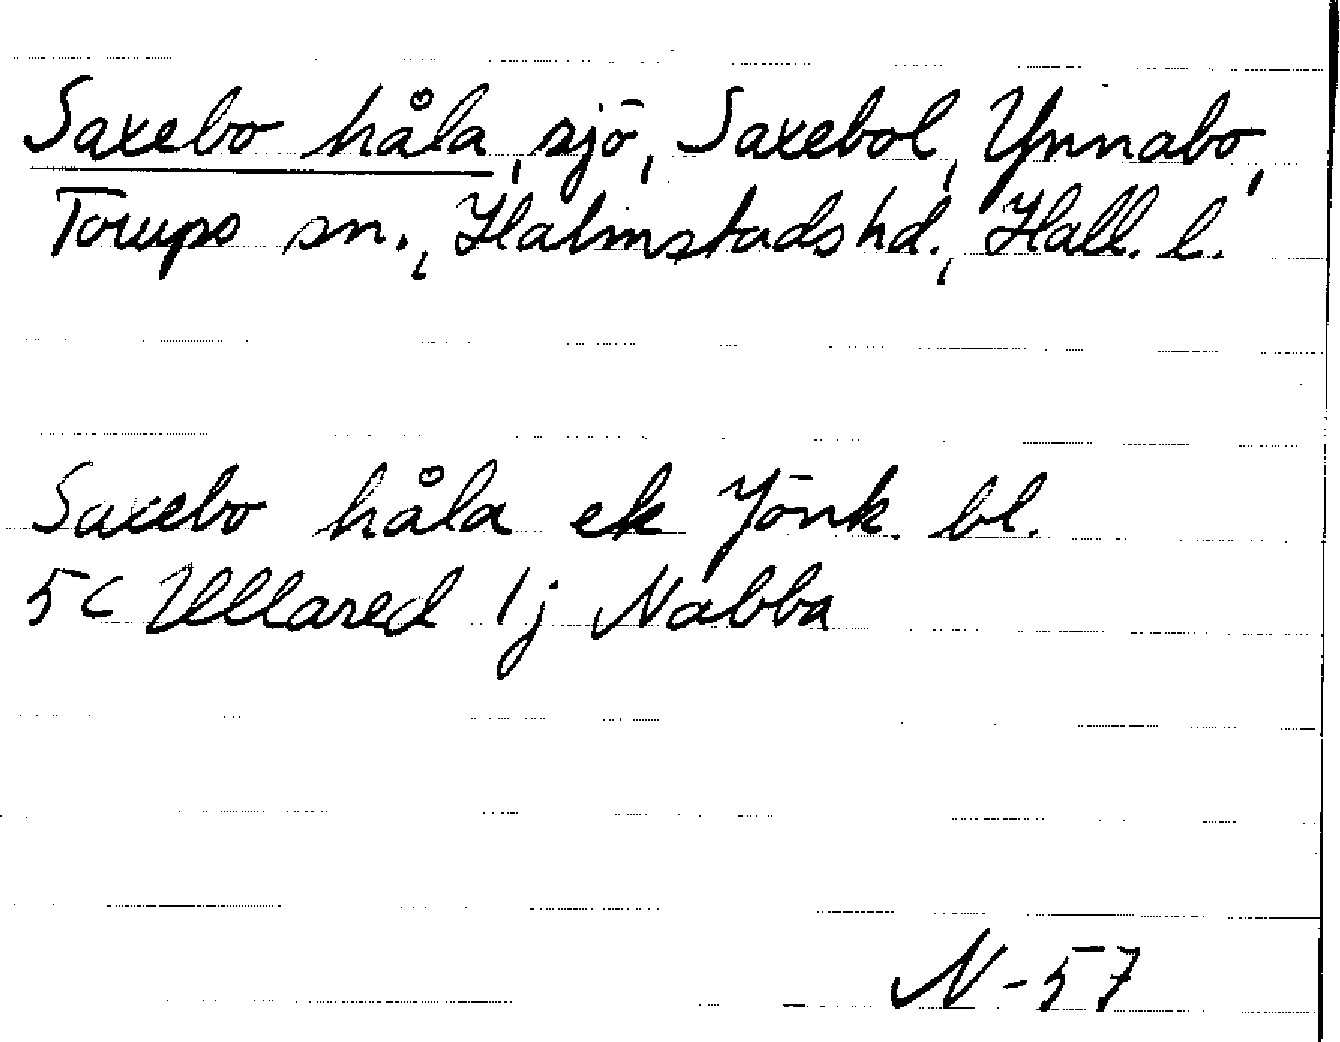 Saxebo håla, sjö, Saxebol, Ynnabo,
Torups sn., Halmstads hd., Hall. l.
Saxebo håla ek Jönk. bl.
5C Ullared 1j Nabba
N-57